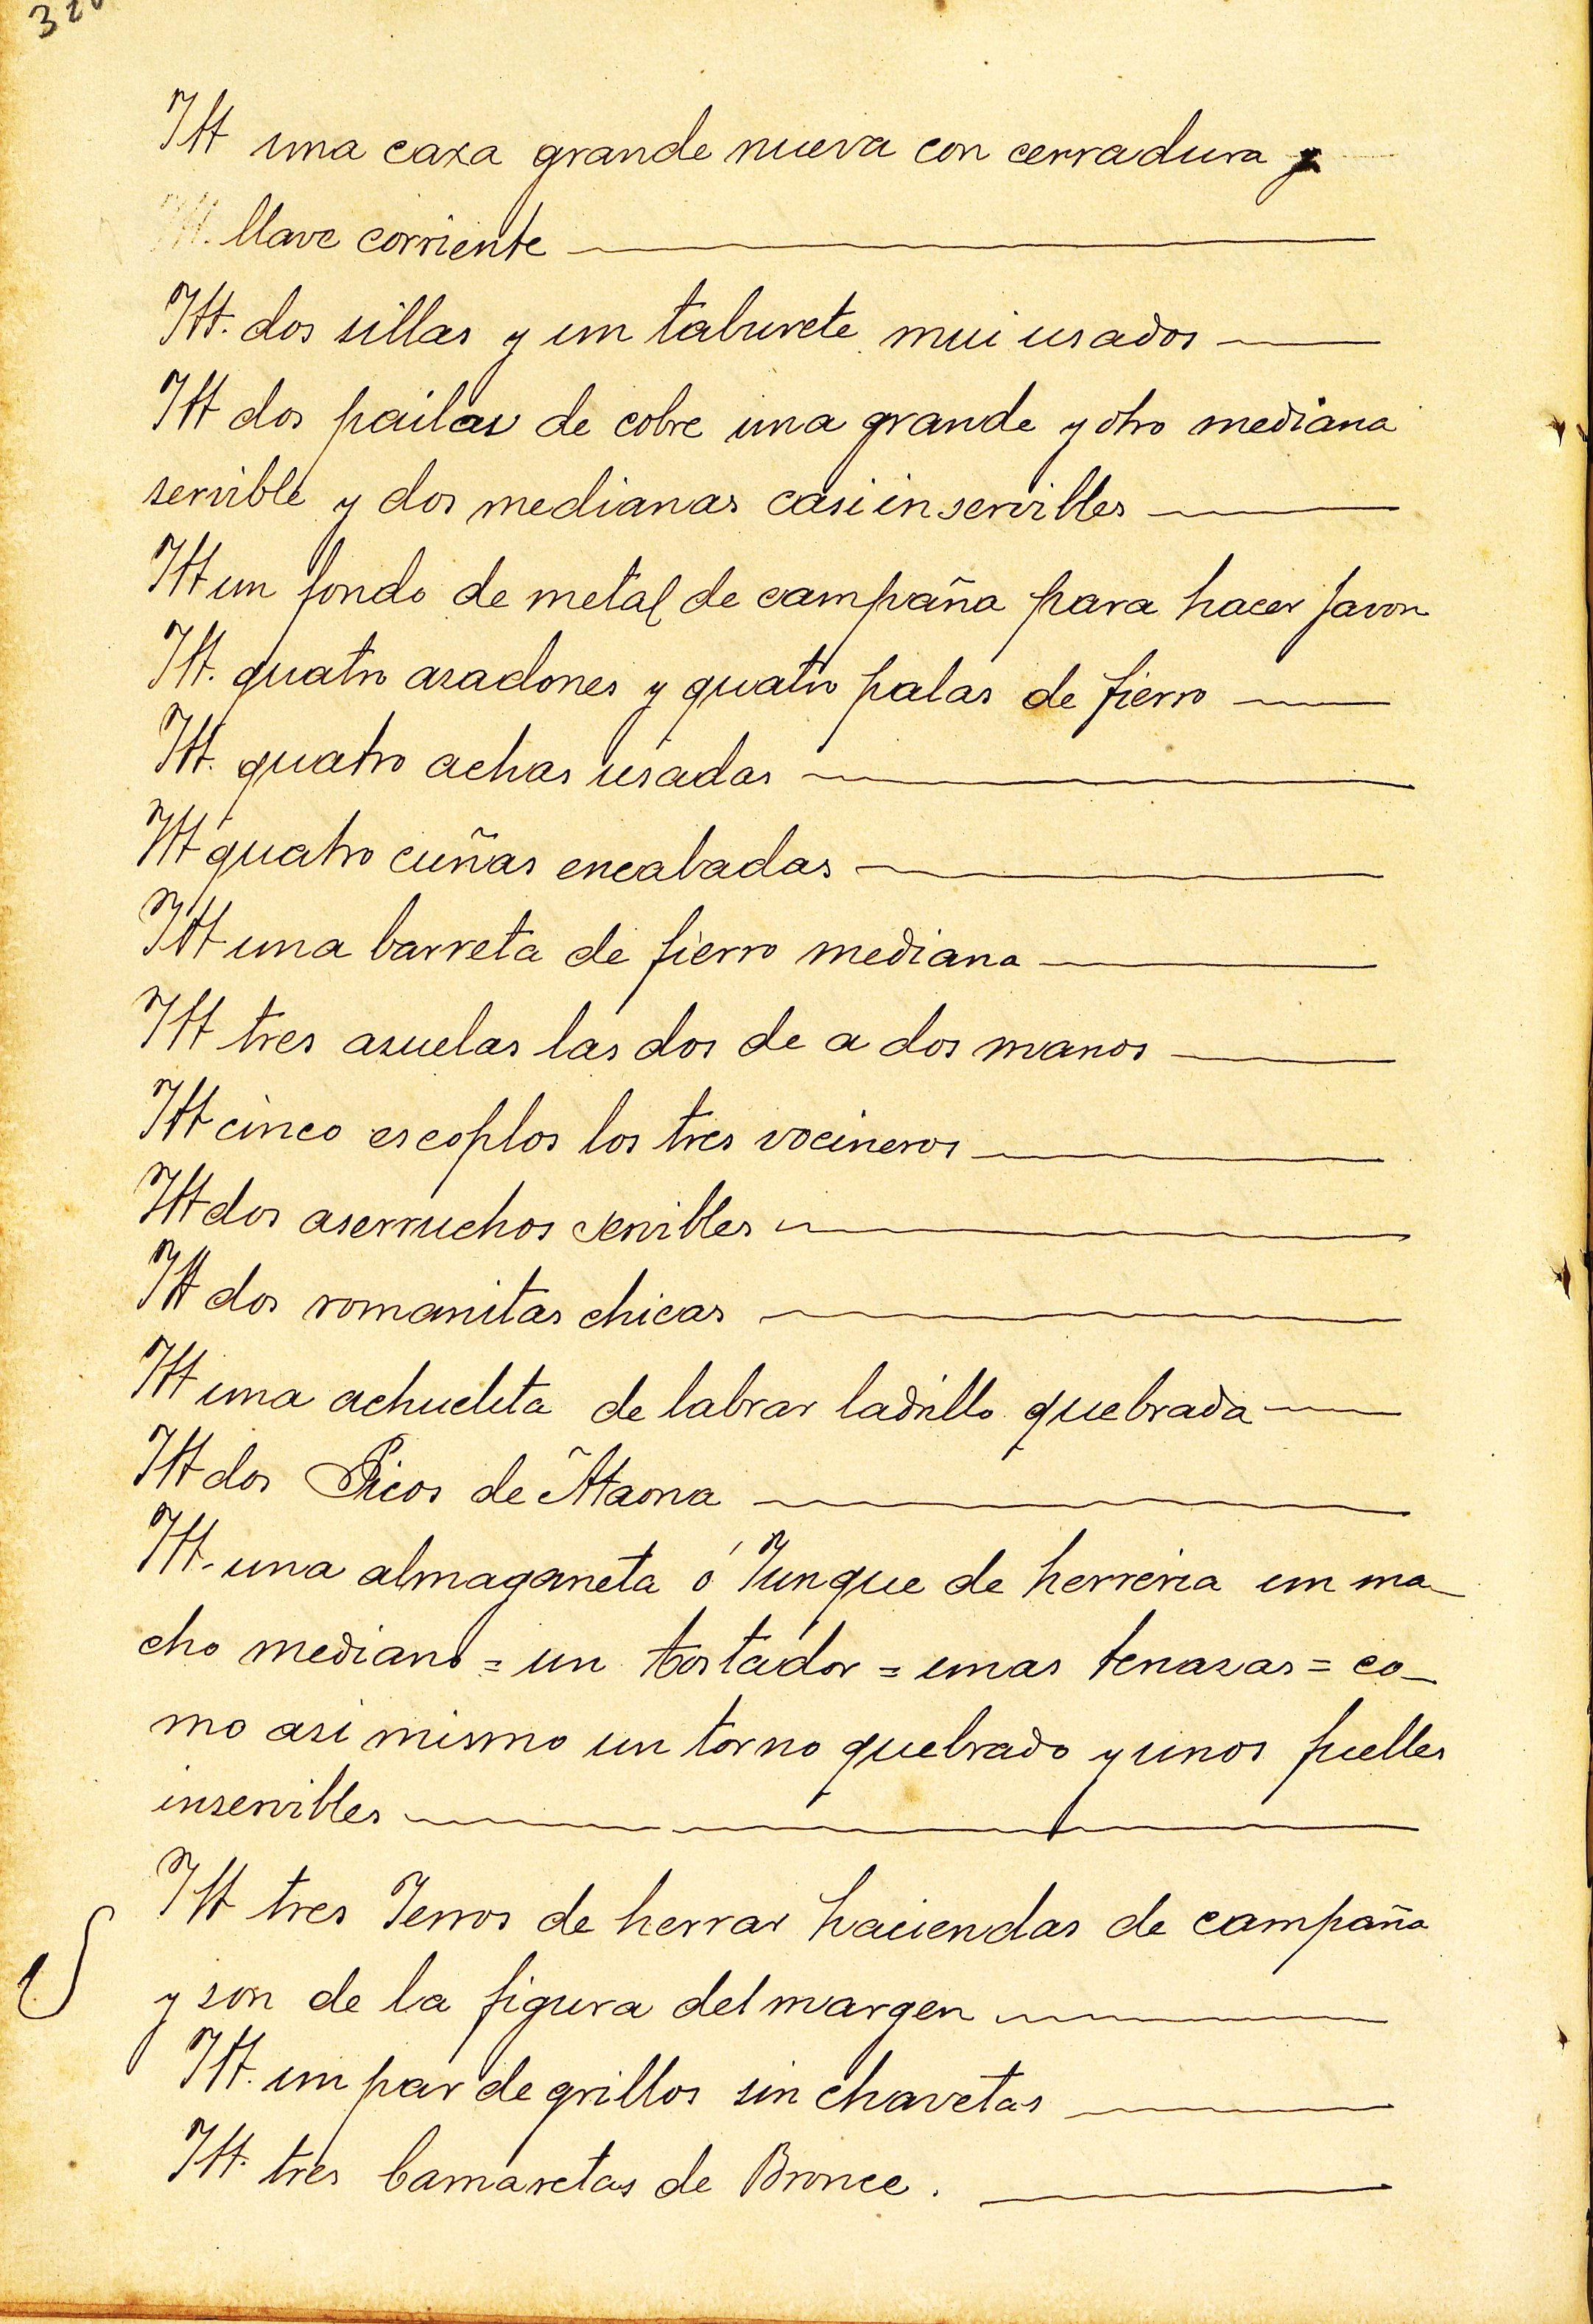 Itt una caxa grande nueva con cerradura y
llave corriente
Itt. dos sillas y un taburete mui usados
Itt dos pailas de cobre una grande y otro mediana
servible y dos medianas casi inservibles
Itt un fondo de metal de campaña para hacer Javon
Itt. quatro asadones y quatro palas de fierro
Itt. quatro achas usadas
Itt quatro cuñas encabadas
Itt una barreta de fierro mediana
Itt tres asuelas las dos de a dos manos
Itt cinco escoplos los tres vocineros
Itt dos aserruchos servibles
Itt dos romanitas chicas
Itt una achuelita de labrar ladrillo quebrada
Itt dos Picos de Ataona
Itt. una almaganeta ó Yunque de herreria un ma
cho mediano = un tostador = unas tenasas = co
mo asi mismo un torno quebrado y unos fuelles
inservibles
Itt tres Yerros de herrar haciendas de campaña
y son de la figura del margen
Itt. un par de grillos sin chavetas
Itt. tres Camaretas de Bronce.